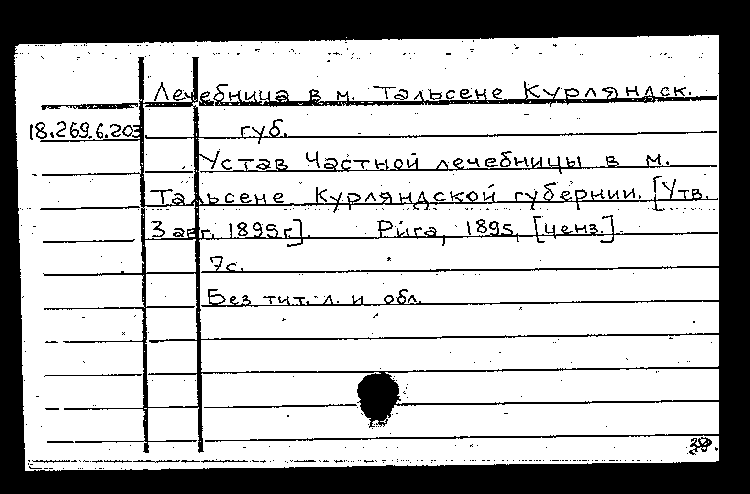 Лечебница в м. Тальсене Курляндск.
18.269.6.203 губ.
Устав Частной лечебницы в м.
Тальсене Курляндской губернии. [Утв.
3 авг. 1895г]. Рига, 1895, [ценз.].
7с.
Без тит. л. и обл.